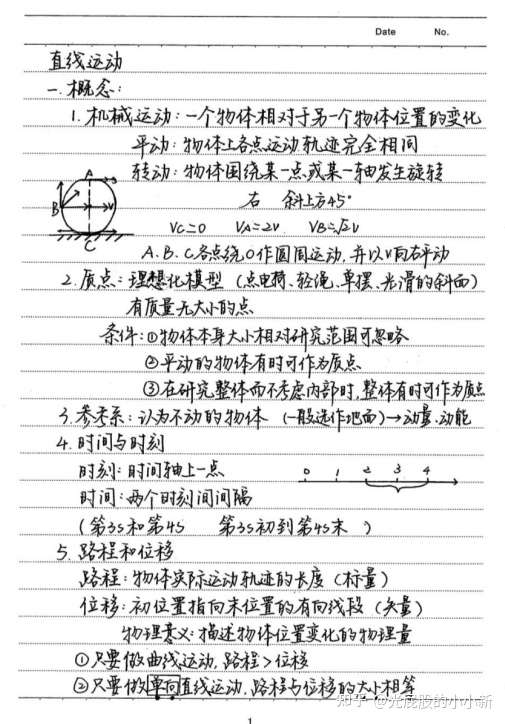 Date No.
直线运动
一.概念:
1.机械运动:一个物体相对于另一个物体位置的变化
平动:物体上各点运动轨迹完全相同
转动:物体围绕某一点或某一轴发生旋转
A
B
v
C
右 斜上方45°
Vc=0 VA=2V VB=√2V
A.B.C各点绕O作圆周运动,并以V向右平动
2.质点:理想化模型(点电荷、轻绳、单摆、光滑的斜面)
有质量无大小的点
条件:①物体本身大小相对研究范围可忽略
②平动的物体有时可作为质点
③在研究整体而不考虑内部时,整体有时可作为质点
3.参考系:认为不动的物体(一般选作地面)→动量、动能
4.时间与时刻
时刻:时间轴上一点
0 1 2 3 4
时间:两个时刻间间隔
(第3s和第4s 第3s初到第4s末)
5.路程和位移
路程:物体实际运动轨迹的长度(标量)
位移:初位置指向末位置的有向线段(矢量)
物理意义:描述物体位置变化的物理量
①只要做曲线运动,路程>位移
②只要做单向直线运动,路程与位移的大小相等
知乎 @光屁股的小小新
1